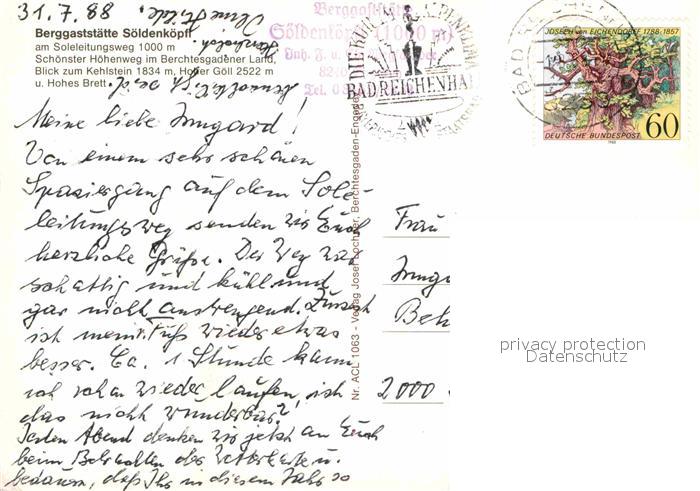 31.7.88
Berggaststätte Söldenköpfl
am Soleleitungsweg 1000 m
Schönster Höhenweg im Berchtesgadener Land,
Blick zum Kehlstein 1834 m, Hoher Göll 2522 m
u. Hohes Brett
Berggaststätte
Söldenköpfl (1000 m)
Inh. F. u.
Tel.
BAD REICHENHALL
JOSEPH VON EICHENDORFF 1788-1857
DEUTSCHE BUNDESPOST 60
Meine liebe Irmgard!
Von einem sehr schönen
Spaziergang auf dem Sole-
leitungsweg senden wir Euch
herzliche Grüße. Der Weg war
schattig und kühl und
gar nicht anstrengend. Zurzeit
ist mein Fuß wieder etwas
besser. Ca. 1 Stunde kann
ich schon wieder laufen, ist
das nicht wunderbar?
Jeden Abend denken wir jetzt an Euch
beim Betrachten der Wetterkarte u.
bedauern, daß Ihr in diesem Jahr so
Nr. ACL 1063 - Verlag Josef Lochner, Berchtesgaden-Engedey
Frau
Irmga
Beh
2000
privacy protection
Datenschutz